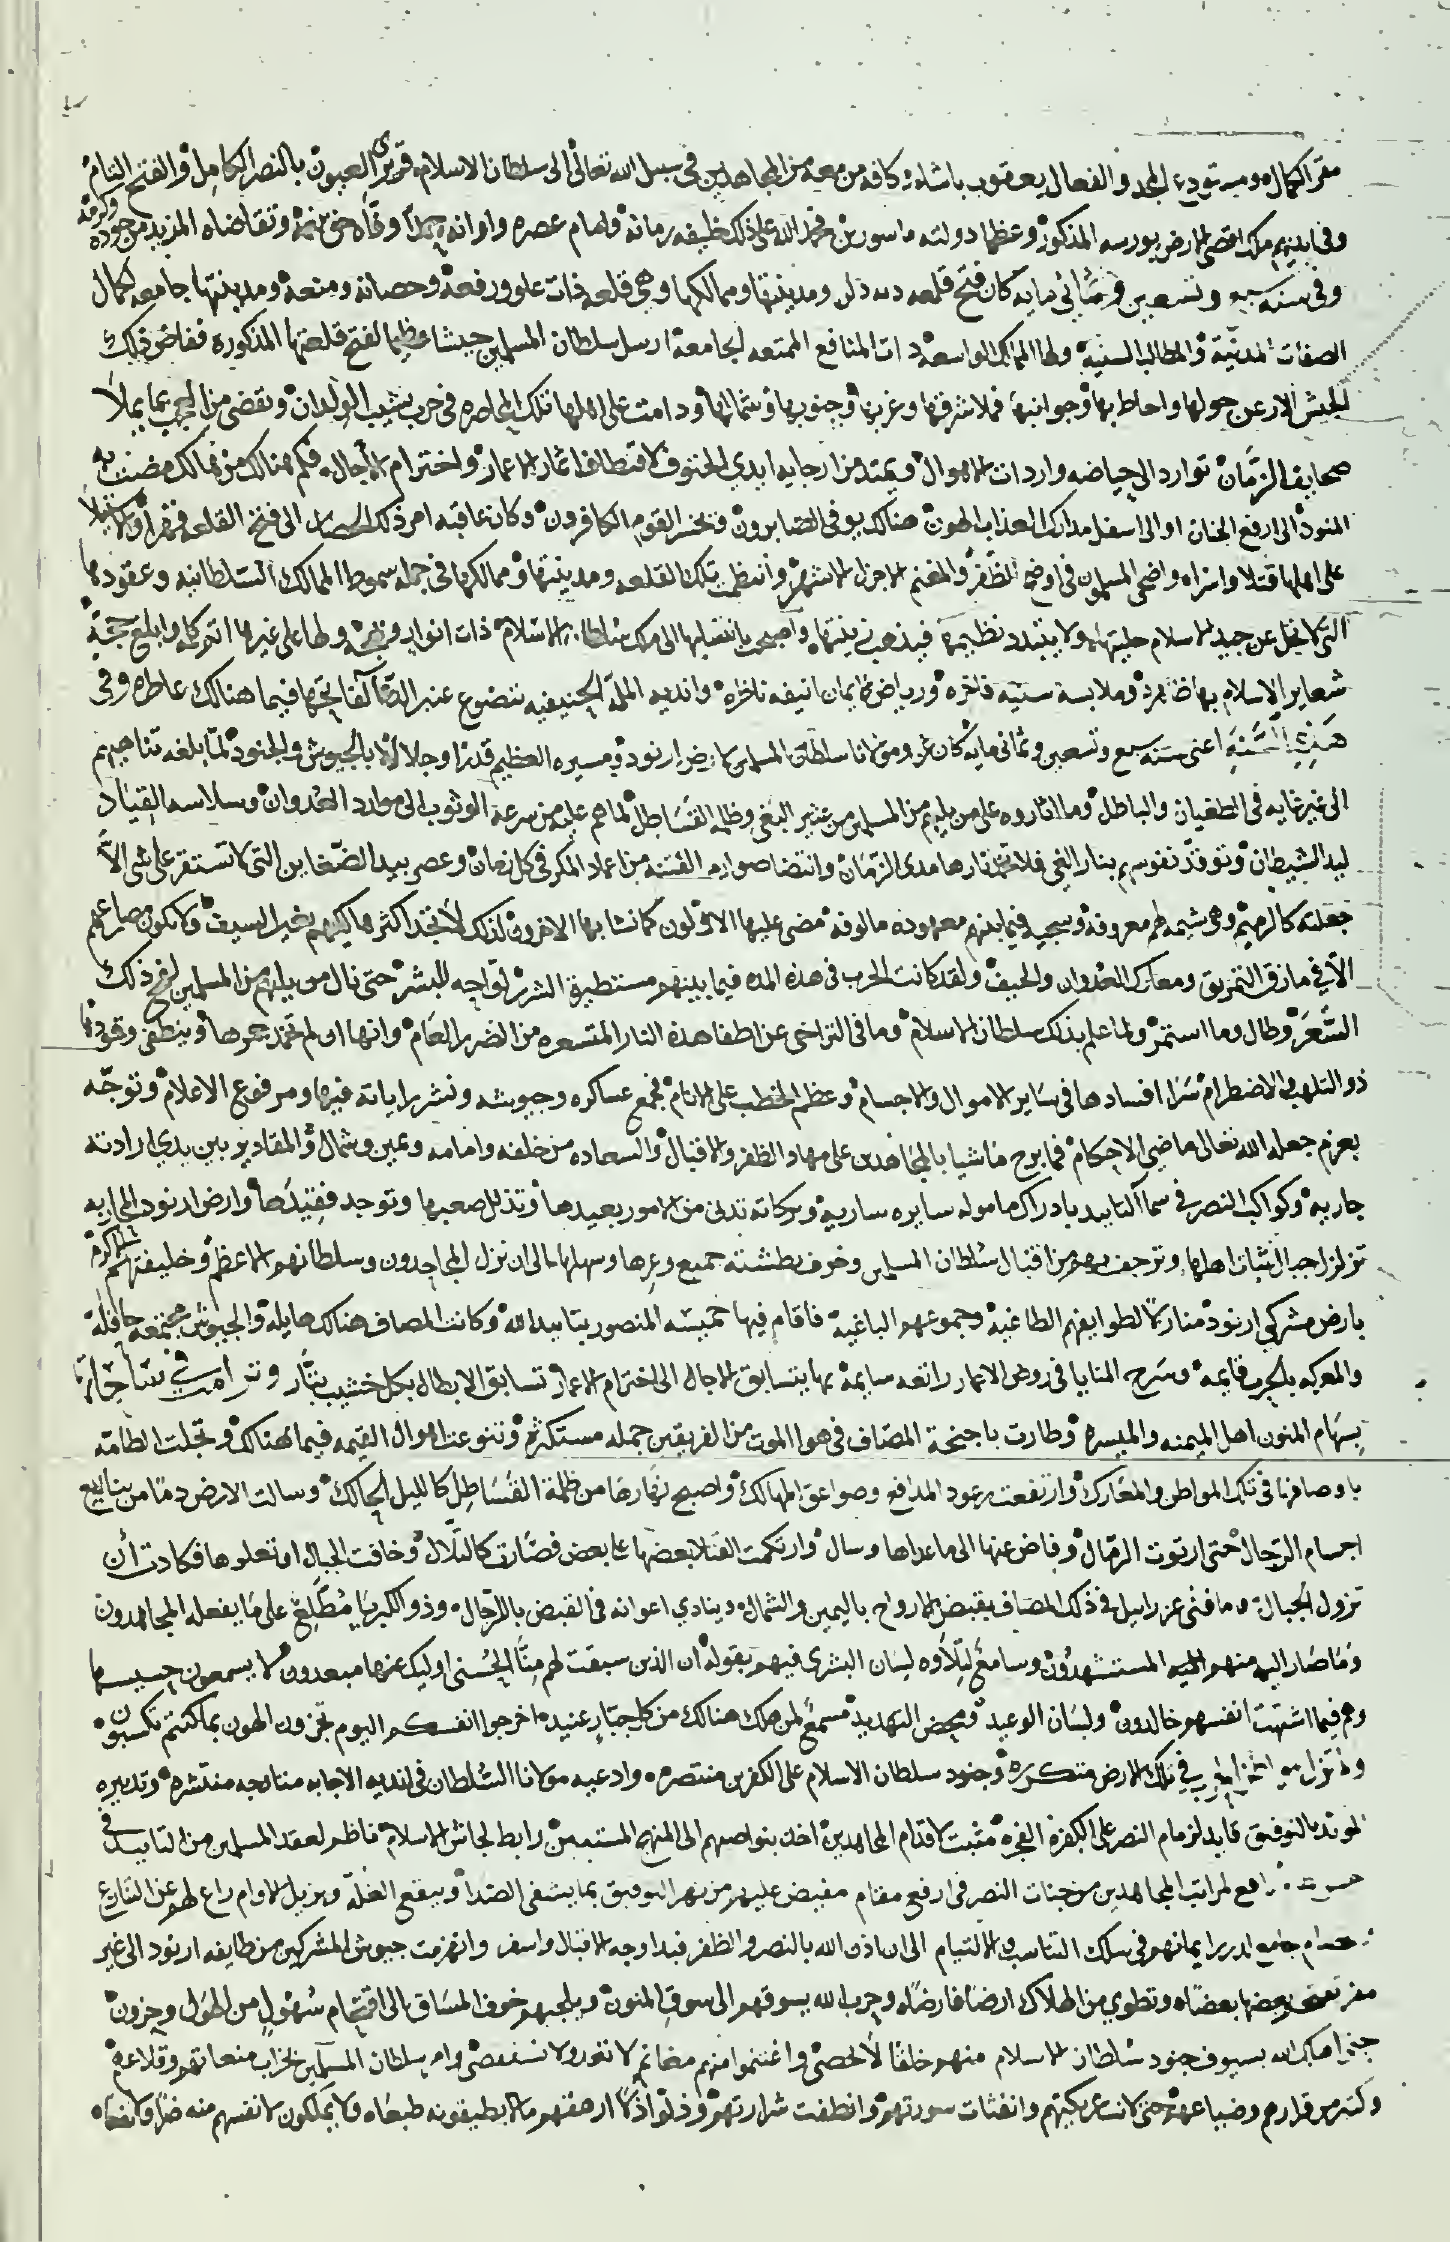 مقر الكمال ومستودع المجد والفعال يعقوب باشا وكافة من معه من المجاهدين في سبيل الله تعالى الى سلطان الاسلام قريري العيون بالنصر الكامل والفتح التام
وفي ايديهم ملك اقصى الارض بورسه المذكور وعظما دولته ماسورين فحمد الله على ذلك خليفه زمانه وامام عصره واوانه وتقاضاه المزيد من جوده وكرمه
وفي سنه سبع وتسعين وثماني مايه كان فتح قلعه ومدينتها وممالكها وهي قلعه ذات علو ورفعه وحصانه ومنعه ومدينتها جامعه لكمال
الصفات المدنية والمطالب السنية ولها الممالك الواسعه ذات المنافع الممتعه الجامعة ارسل سلطان المسلمين جيشا عظيما لفتح قلعتها المذكورة ففاض ذلك
الجيش الارعن حولها واحاط بها وجوانبها فملا شرقها وغربها وجنوبها وشمالها ودامت على اهلها تلك المحاصره في حرب يشيب الولدان ويقضي من العجب بما يملا
صحايف الزمان توارد الى حياضه واردات الاهوال ويمتد من ارجايه ايدي الحتوف لاقتطاف اثمار الاعمار واخترام الاجال فكم هنالك من هالك مضت به
المنون الى ارفع الجنان او الى اسفل مدارك العذاب الهون هنالك يوفى الصابرون ويخسر القوم الكافرون وكان عاقبه امر ذلك الحصار الى فتح القلعه قهرا واستيلا
على اهلها قتلا واسراه واضحى المسلمون في اوضح الظفر والمغنم الاجزل الاشهر وانتظمت تلك القلعه ومدينتها وممالكها في جمله سموط الممالك السلطانيه وعقودها
التي لا تخل عن جيد الاسلام حليتها ولا يتبدد نظيمها فيذهب زينتها واصبحت بانتقالها الى ملك سلطان الاسلام ذات انوار ولها على غيرها وابلغ حجة
شعاير الاسلام بها ظاهره وملابسة سنيه فاخره ورياض الايمان انيقه ناضره واندية الملة الحنيفيه تتضوع عنبر فيما هنالك عاطره وفي
هذه السنه اعنى سنه سبع وتسعين وثماني مايه كان غزو مولانا سلطان المسلمين لارض ارنود ومسيره العظيم قدرا وجلالا بالجيوش والجنود لما بلغه تناهيهم
الى غير غايه في الطغيان والباطل وما اثاروه على من يليهم من المسلمين من عثير البغي وظلم القساطل لما هم عليه من سرعة الوثوب الى موارد العدوان وسلاسه القياد
ليد الشيطان وتوقد نفوسهم بنار الغي فلا تخمد نارها مدى الزمان وانتضا صوارم الفتنه من اغماد المكر في كل زمان وعصر بيد الضغاين التي لا تستقر على شي الا
جعلته كالرميم وهو شيمه لهم معروفه وسجيه فيما بينهم معهوده مالوفه مضى عليها الاولون كما نشا بها الاخرون لذلك لا تجد اكثر هالكيهم بغير السيف ولا تكون مصارعهم
الا في مازق التمزيق ومعارك العدوان والحيف ولقد كانت الحرب في هذه المده فيما بينهم مستطيرة الشرر لواحه للبشر حتى نال من يليهم من المسلمين لفح ذلك
السعر وطال وما استمر ولما علم بذلك سلطان الاسلام وما في التراخي عن اطفا هذه النار المتسعره من الضرر العام وانها ان لم تخمد جمرها وينطفي وقودها
ذو التلهب الاضطرام سرا افسادها في ساير الاموال والاجسام وعظم الخطب على الانام فجمع عساكره وجيوشه ونشر راياته فيها ومرفوع الاعلام وتوجه
بعزم جعله الله تعالى ماضي الاحكام فما برح ماشيا بالمجاهدين على مهاد الظفر والاقبال والسعاده من خلفه وامامه ويمين وشمال والمقادير بين يدي ارادته
جاريه وكواكب النصر في سما التاييد بادراك مامولة سايره ساريه وبركاته تدني من الامور بعيدها وتذلل صعبها وتوجد فقيدها وارض ارنود المحاربه
تزلزل جبال ثبات اهلها وترجف من اقبال سلطان المسلمين وخوف بطشته جميع وعرها وسهلها الى ان نزل المجاهدون وسلطانهم الاعظم وخليفتهم الاكرم
بارض مشركي ارنود منازلا لطوايفهم الطاغيه وجموعهم الباغيه فاقام فيها خميسه المنصور بتاييد الله وكانت المصاف هنالك هايله والجيوش مجتمعه حافله
والمعركه بالحرب قايمه وسرح المنايا في روض الاعمار راتعه سايمه بها يتسابق الاجال الى اخترام الاعمار تسابق الابطال بكل خشيب بتار وترامت
بسهام المنون اهل الميمنه والميسره وطارت باجنحة المصاف في هوا الموت من الفريقين جمله مستكثره وتنوعت اهوال القيمه فيما هنالك وتجلت الطامه
باوصافها في تلك المواطن والمعارك وارتفعت رعود المدافع وصواعق المهالك واصبح نهارها من ظلمة القساطل كالليل الحالك وسالت الارض دما من ينابيع
اجسام الرجال حتى ارتوت الرمال وفاض عنها الى ماعداها وسال وارتكمت القتلا بعضها على بعض فصارت كالتلال وخافت الجبال ان تعلوها فكادت ان
تزول الجبال وما فتي عزراييل في ذلك المصاف يقبض الارواح باليمين والشمال وينادي اعوانه في القبض بالرجال وذو الكبريا مطلع على ما يفعله المجاهدون
وما صار اليه منهم المستشهدون وسامع لتلاوه لسان البشرى فيهم بقوله ان الذين سبقت لهم منا الحسنى اوليك عنها مبعدون لا يسمعون حسيسها
وهم فيما اشتهت انفسهم خالدون ولسان الوعيد ومحض التهديد مسمع لمن هلك هنالك من كل جبار عنيد اخرجوا انفسكم اليوم تجزون الهون بما كنتم تكسبون
ولم تزل الحرب في تلك الارض متكرره وجنود سلطان الاسلام على الكفرين منتصره وادعيه مولانا السلطان في اندية الاجابه منتشره وتدبيره
المويد بالتوفيق قايد لزمام النصر على الكفرة الفجره مثبت لاقدام المجاهدين اخذ بنواصيهم الى المنهج المستبين رابط لجاش الاسلام ناظم لعقد المسلمين من التاييد في
رافع لمراتب المجاهدين من جنات النصر في ارفع مقام مفيض عليهم من نهر التوفيق بما يشفى الصدا وينقع الغلة ويزيل الاوام راع لهم عن
جامع ايمانهم في سلك التناسب والالتيام الى ان اذن الله بالنصر والظفر فبدا وجه الاقبال واسفر وانهزمت جيوش المشركين من طايفه ارنود الى غير
مفر بعضها بعضا وتطوي من الهلاك ارضا فارضا وحرب الله يسوقهم الى سوق المنون ويلجيهم خوف المساق الى اقتحام سهول من الهول وحزون
اهلك الله بسيوف جنود سلطان الاسلام منهم خلقا لا تحصى واغتنموا منهم مغانم لا تعد ولا تستقصى وامر سلطان المسلمين بخراب منعاتهم وقلاعهم
وكثير من قراهم وضياعهم حتى لانت عريكتهم وانفثات سورتهم وانطفت شرارتهم وذلوا ارهقهم ما لا يطيقونه طبعا ولا يملكون لانفسهم منه ضرا ولا نفعا